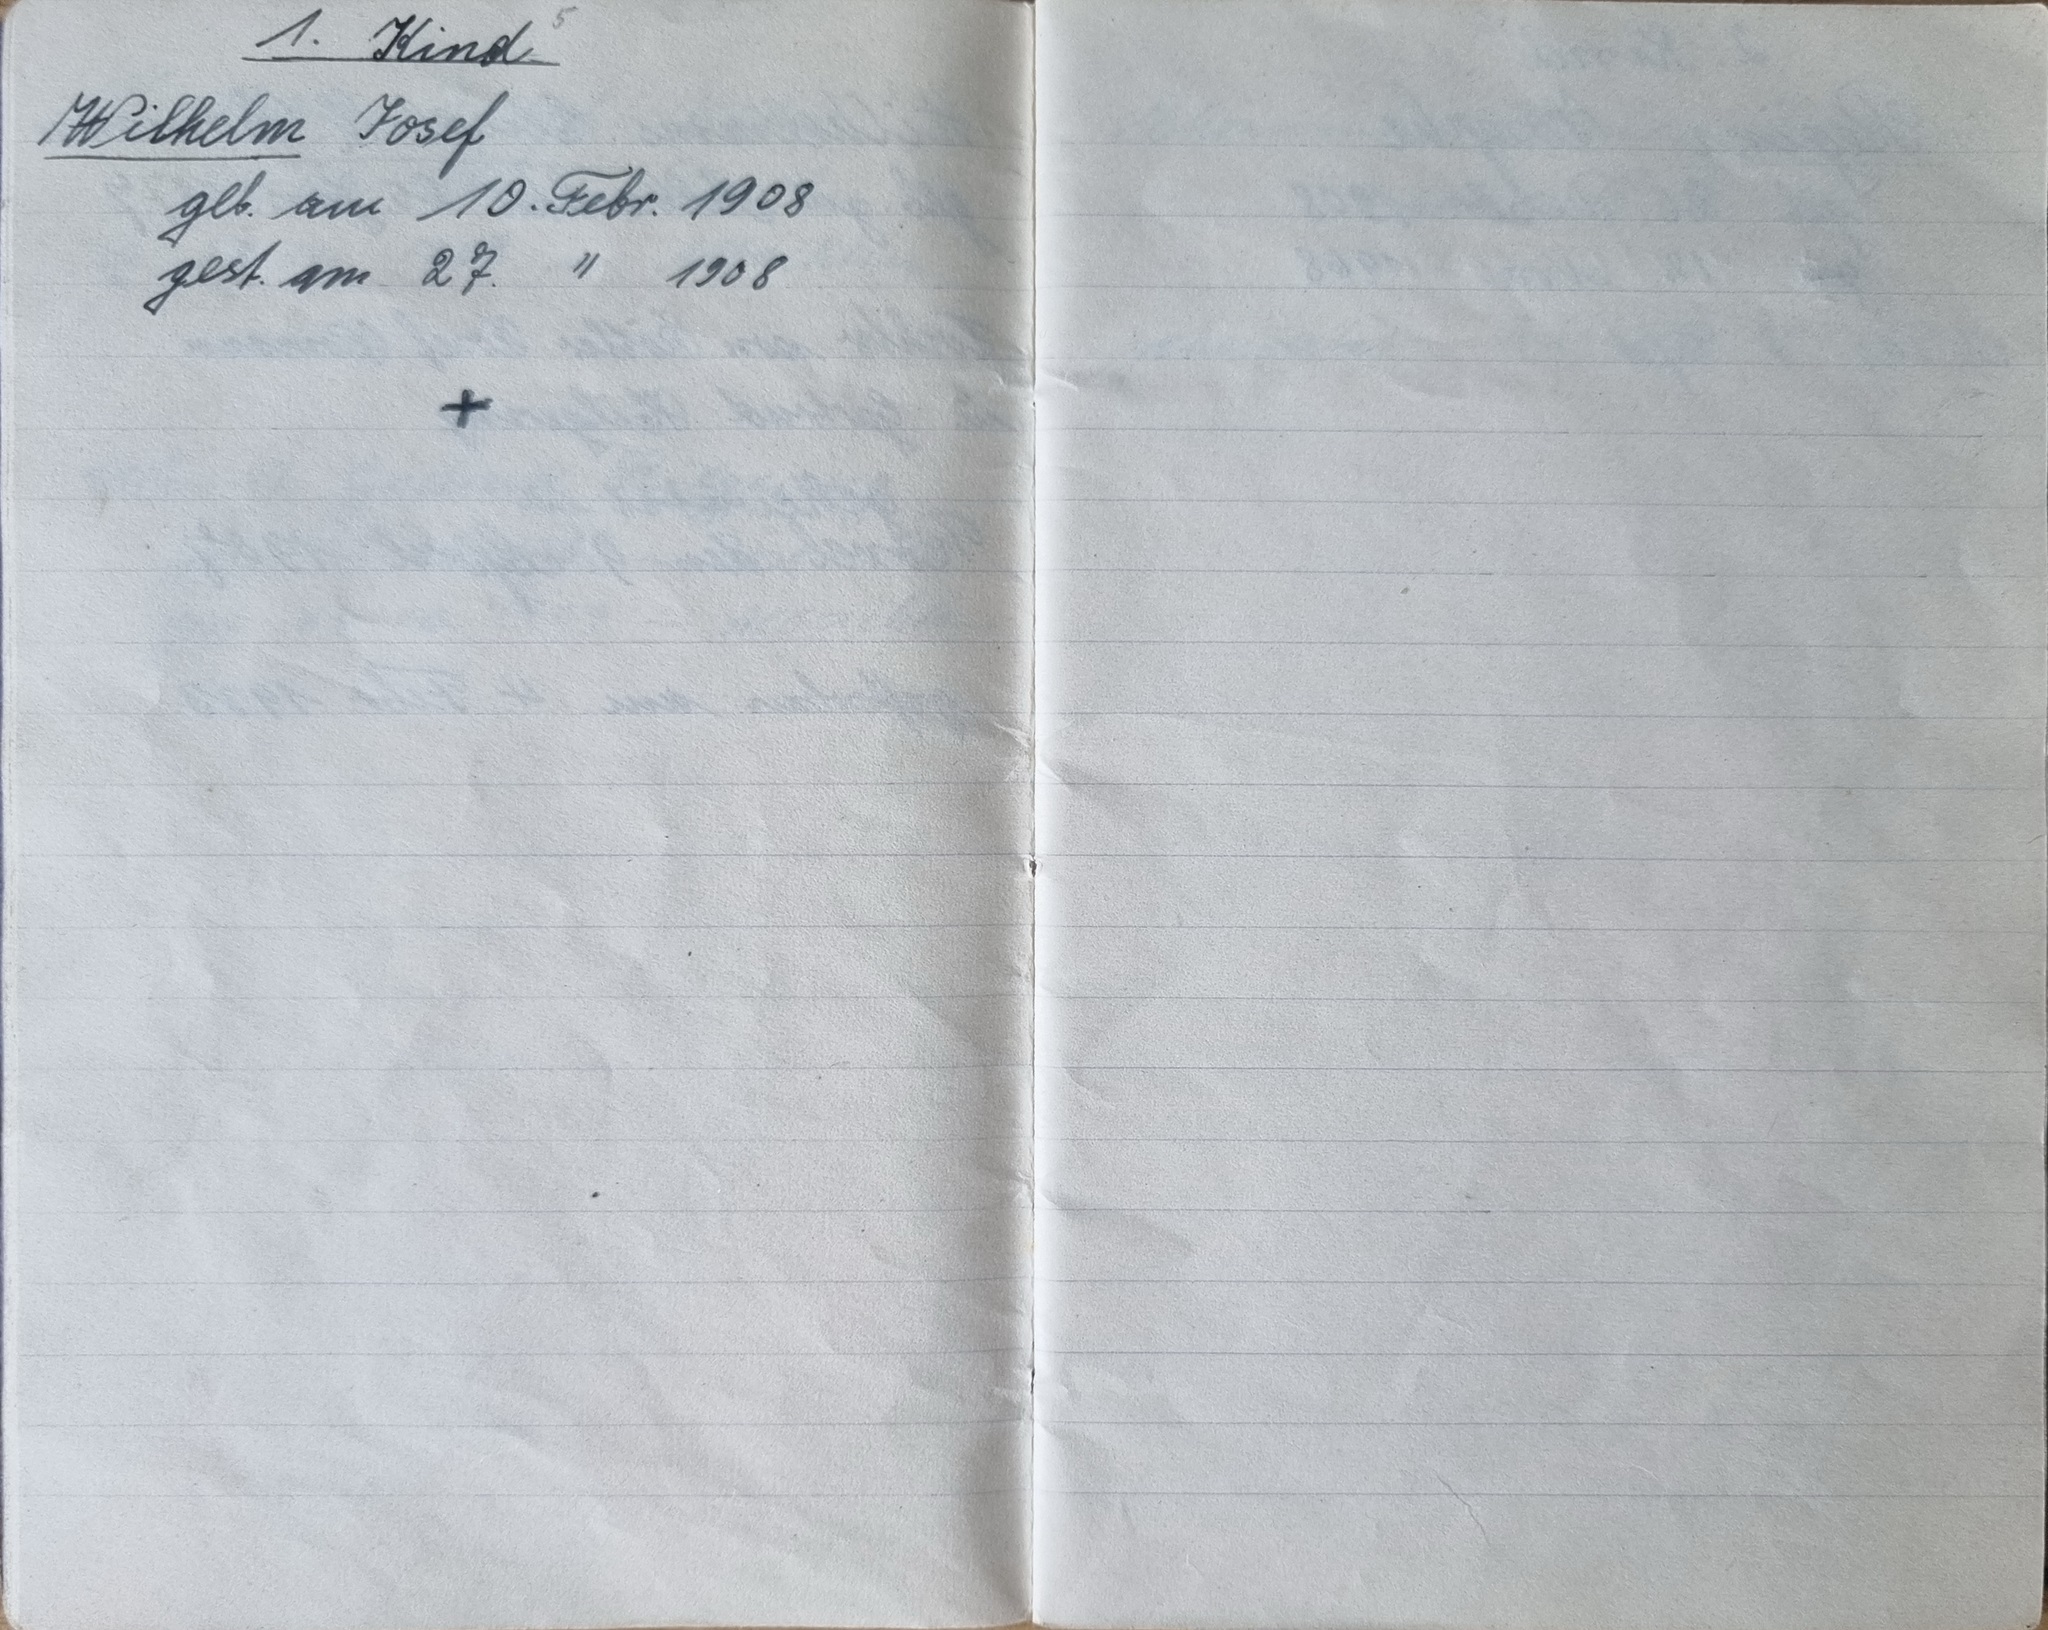 1. Kind 5
Wilhelm Josef
geb. am 10. Febr. 1908
gest. am 27. " 1908
+